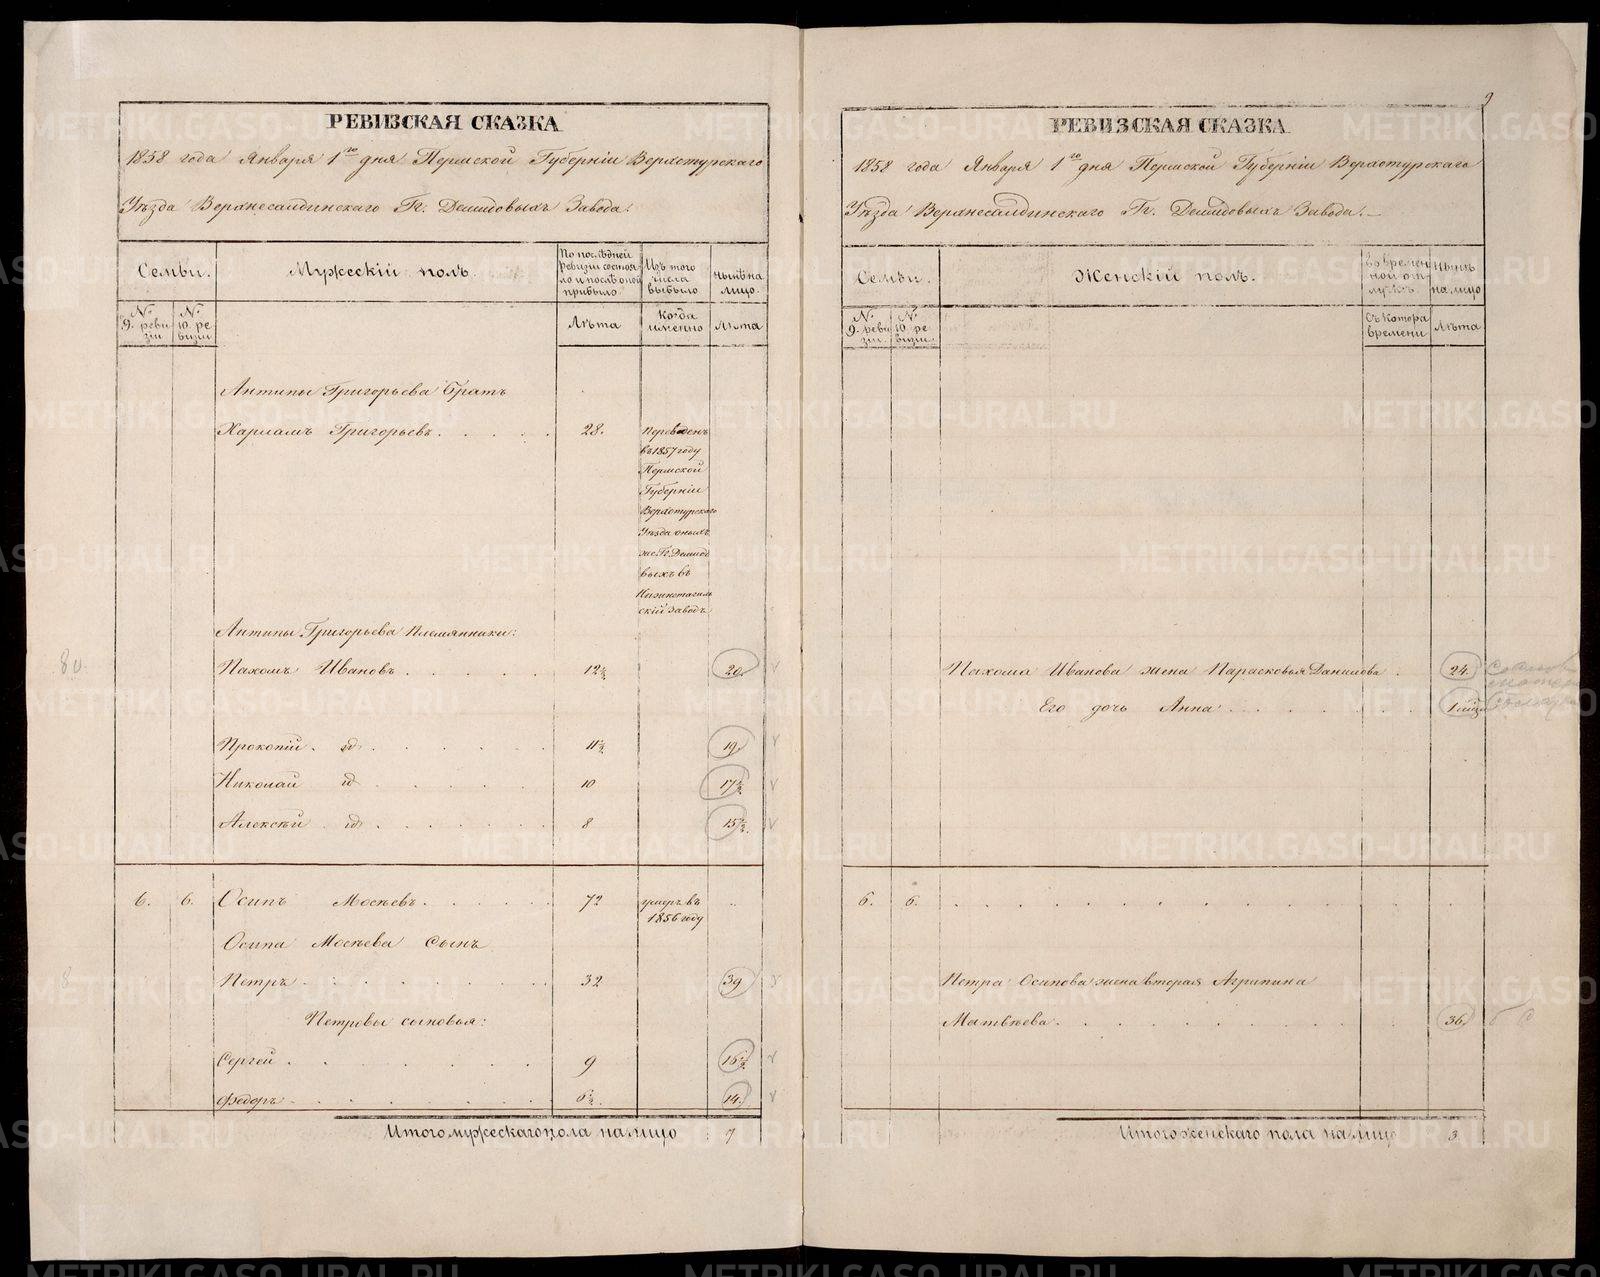 РЕВИЗСКАЯ СКАЗКА
1858 года Января 1го дня Пермской Губерніи Верхотурскаго
Уѣзда Верхнесалдинскаго Гг. Демидовыхъ Завода.
Семьи.
Мужескій полъ.
По послѣдней ревизіи состояло и послѣ оной прибыло
Изъ того числа выбыло
Нынѣ на лицо.
№ 9. ревизіи
№ 10. ревизіи
Лѣта
Когда именно
Лѣта
Антипы Григорьева братъ
Харламъ Григорьевъ. 28.
Переведенъ
въ 1857 году
Пермской
Губерніи
Верхотурскаго
Уѣзда оныхъ
же Гг. Демидо
выхъ въ
Нижнетагиль
скій заводъ
Антипы Григорьева Племянники:
80.
Пахомъ Ивановъ 12½ 20.
Прокопій. id. 11½ 19.
Николай id 10 17½
Алексѣй id 8 15½.
6. 6. Осипъ Мосѣевъ 72 умеръ въ
1856 году
Осипа Мосѣева Сынъ
8
Петръ 32 39
Петровы сыновья:
Сергей 9 16½.
Федоръ 6½. 14.
Итого мужескаго пола на лицо 7
9
РЕВИЗСКАЯ СКАЗКА
1858 года Января 1го дня Пермской Губерніи Верхотурскаго
Уѣзда Верхнесалдинскаго Гг. Демидовыхъ Завода.
Семьи.
Женскій полъ.
во времен
ной от
лучкѣ.
Нынѣ
на лицо
№ 9. ревизіи.
№ 10. ревизіи.
Съ котора
времени
Лѣта
Пахома Иванова жена Парасковья Данилова 24.
Его дочь Анна
6. 6.
Петра Осипова жена вторая Агрипина
Матвѣева. 36
Итого женскаго пола на лицо 3.
METRIKI.GASO-URAL.RU